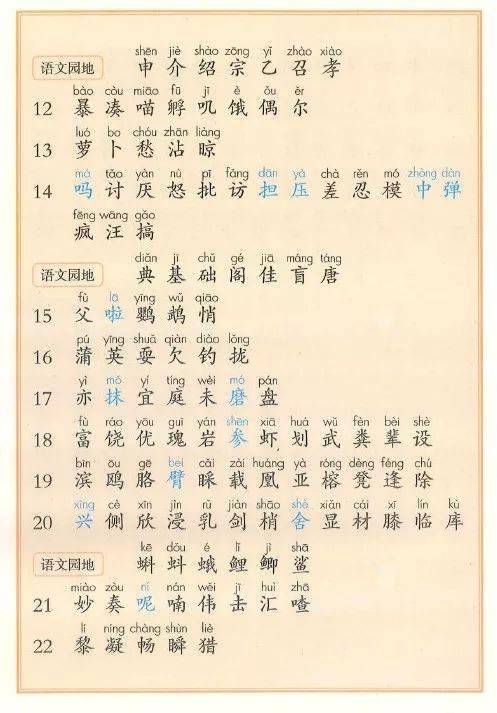 shēn jiè shào zōng yǐ zhào xiào
语文园地 申 介 绍 宗 乙 召 孝
bào còu miāo fū jī è ǒu ěr
12 暴 凑 喵 孵 叽 饿 偶 尔
luó bo chóu zhān liàng
13 萝 卜 愁 沾 晾
má tǎo yàn nù pī fǎng dān yā chà rěn mó zhòng dàn
14 吗 讨 厌 怒 批 访 担 压 差 忍 模 中 弹
fēng wāng gǎo
疯 汪 搞
diǎn jī chǔ gé jiā máng táng
语文园地 典 基 础 阁 佳 盲 唐
fù lā yīng wǔ qiāo
15 父 啦 鹦 鹉 悄
pú yīng shuǎ qiàn diào lǒng
16 蒲 英 耍 欠 钓 拢
yì mǒ yí tíng wèi mó pán
17 亦 抹 宜 庭 未 磨 盘
fù ráo yōu guī yán shēn xiā huá wǔ fèn bèi shè
18 富 饶 优 瑰 岩 参 虾 划 武 粪 辈 设
bīn ōu gē bei cǎi zǎi huáng yà róng dèng féng chú
19 滨 鸥 胳 臂 睬 载 凰 亚 榕 凳 逢 除
xīng cè xīn jìn rǔ jiàn shāo shě xiǎn cái xī lín kù
20 兴 侧 欣 浸 乳 剑 梢 舍 显 材 膝 临 库
kē dǒu é lǐ jì shā
语文园地 蝌 蚪 蛾 鲤 鲫 鲨
miào zòu ní nán wěi jī huì zhā
21 妙 奏 呢 喃 伟 击 汇 喳
lí níng chàng shùn liè
22 黎 凝 畅 瞬 猎